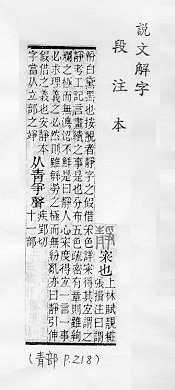 說文解字
段注本
靜
宷也
上林賦靚糚
張揖注曰謂
粉白黛黑也按靚者靜字之假借采色詳宷得其宜謂之
靜考工記言畫繢之事是也分布五色疏密有章則雖絢
爛之極而無淟涊不鮮是曰靜人心宷度得宜一言一事
必求理義之必然則雖緐勞之極而無紛亂亦曰靜引伸
假借之義也安靜本
字當从立部之竫
从青爭聲
疾郢切
十一部
(青部 P.218)